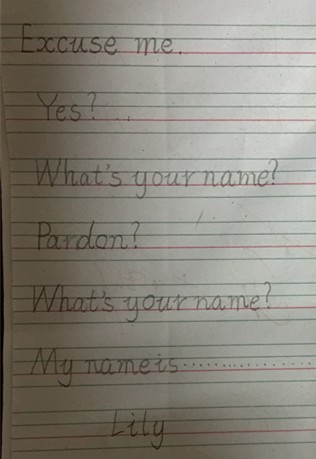 Excuse me.
Yes?...
What's your name?
Pardon?
What's your name?
My name is...............
Lily